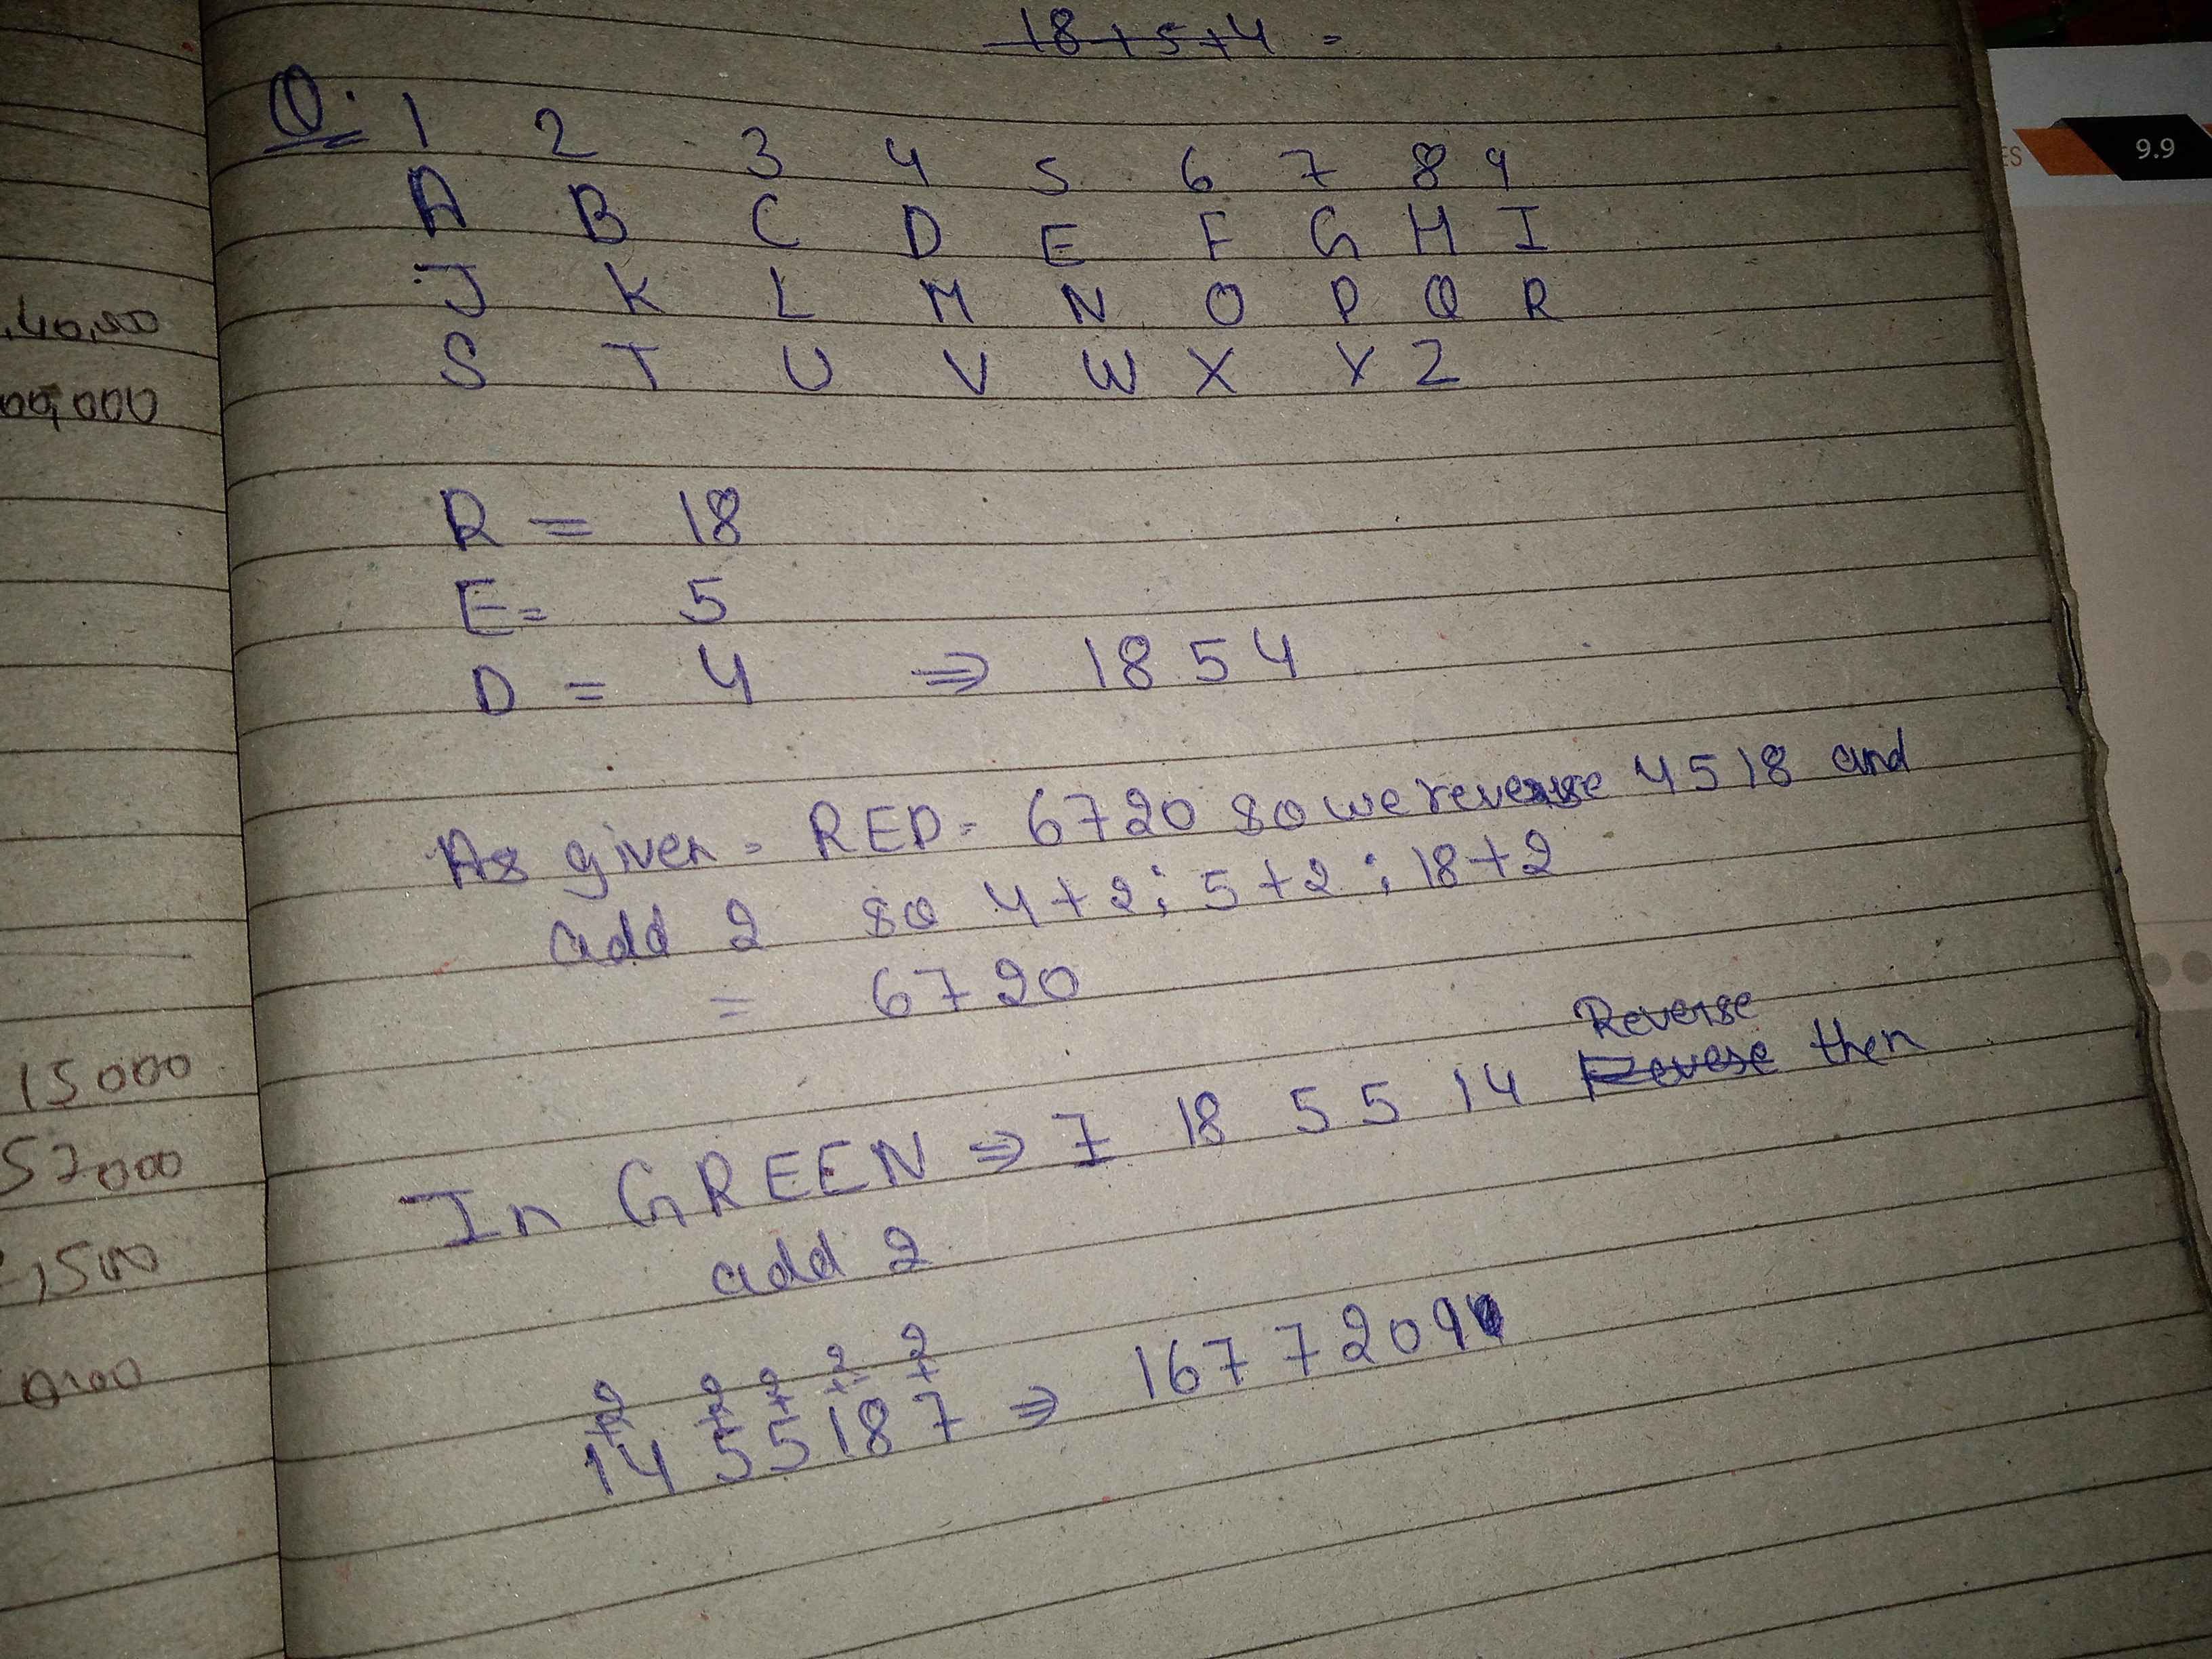 18+5+4 =
Q. 1 2 3 4 5 6 7 8 9
A B C D E F G H I
J K L M N O P Q R
S T U V W X Y Z
R = 18
E = 5
D = 4 ⇒ 1854
As given = RED = 6720 so we reverse 4518 and
add 2 so 4+2; 5+2; 18+2
= 6720
Reverse
In GREEN ⇒ 7 18 5 5 14 then
add 2
2 2 2 2 2
+ + + + +
14 5 5 18 7 ⇒ 167 7 209
40,500
00,000
15000
57000
,500
ES 9.9